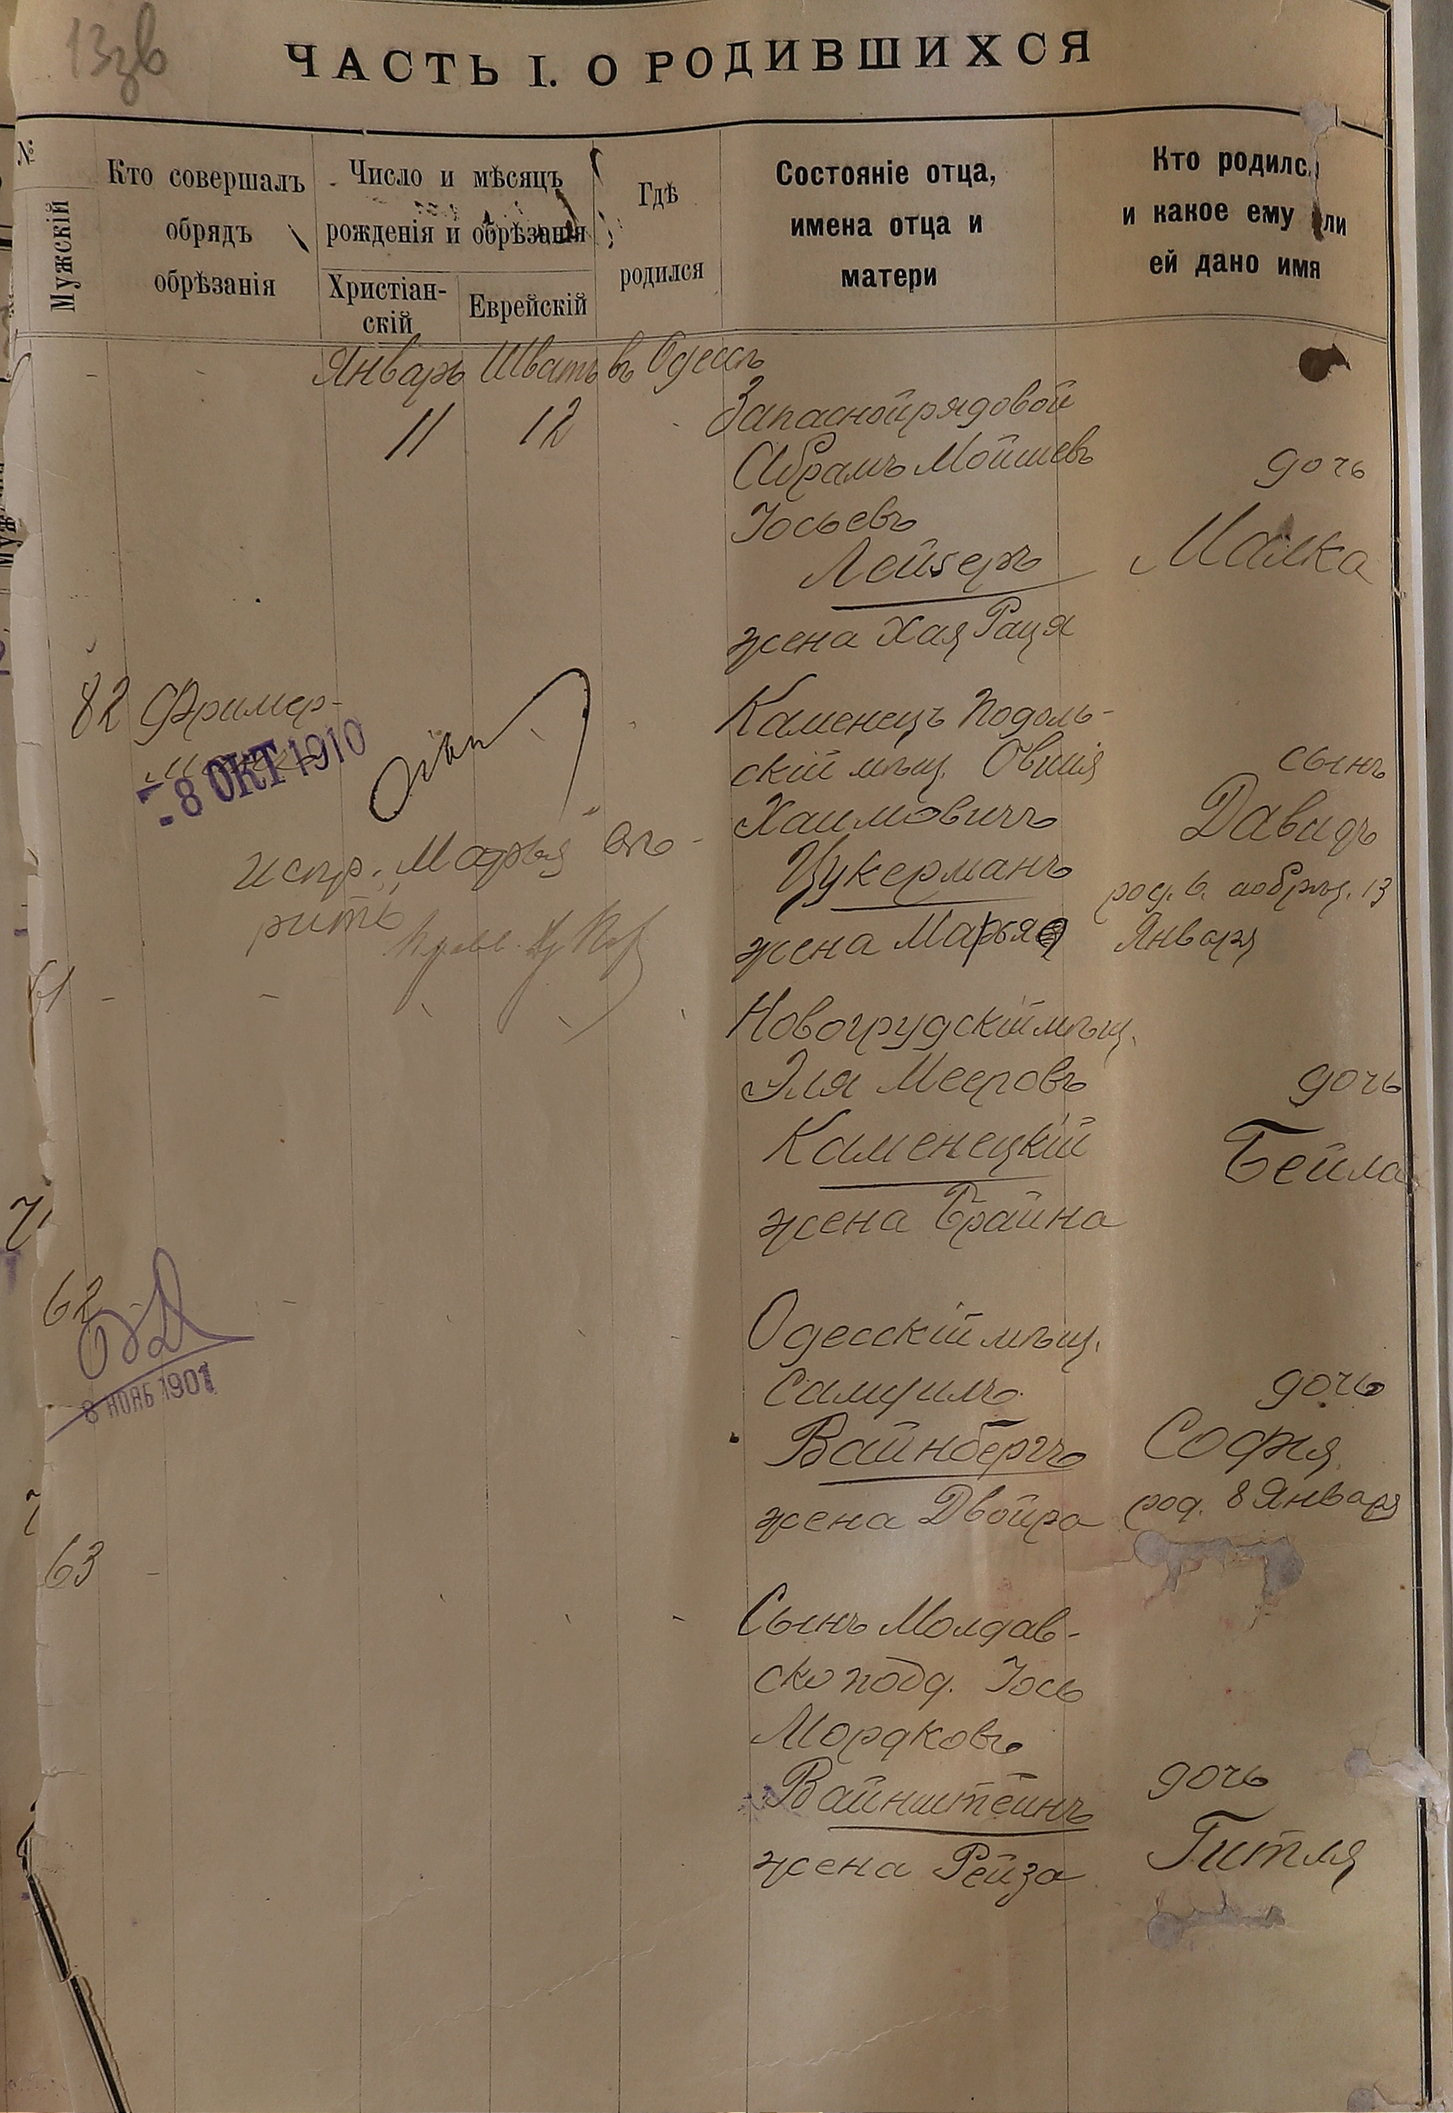 13зв
ЧАСТЬ I. О РОДИВШИХСЯ
№
Мужскій
Кто совершалъ
обрядъ
обрѣзанія
Число и мѣсяцъ
рожденія и обрѣзанія
Христіан-
скій
Еврейскій
Гдѣ
родился
Состояніе отца,
имена отца и
матери
Кто родилс
и какое ему ли
ей дано имя
Январь Шватъ въ Одессѣ
11 12
Запасной рядовой
Абрамъ Мойшевъ
Іосьевъ
Лейзеръ
жена Хая Рася
дочь
Малка
82 Фример-
- 8 ОКТ 1910
Каменецъ Подоль-
скій мѣщ. Овшія
Хаимовичъ
Цукерманъ
жена Марья
сынъ
Давидъ
род. 6. а обрѣз. 13
Января
испр. Марья вѣ-
рить
61
Новогрудскій мѣщ.
Эля Мееровъ
Каменецкій
жена Брайна
дочь
Бейла
62
8 НОЯБ 1901
Одесскій мѣщ.
Самуилъ
Вайнбергъ
жена Двойра
дочь
Софія
род. 8 Января
63
Сынъ Молдав-
ско подд. Іось
Мордковъ
Вайнштейнъ
жена Рейза
дочь
Гитля